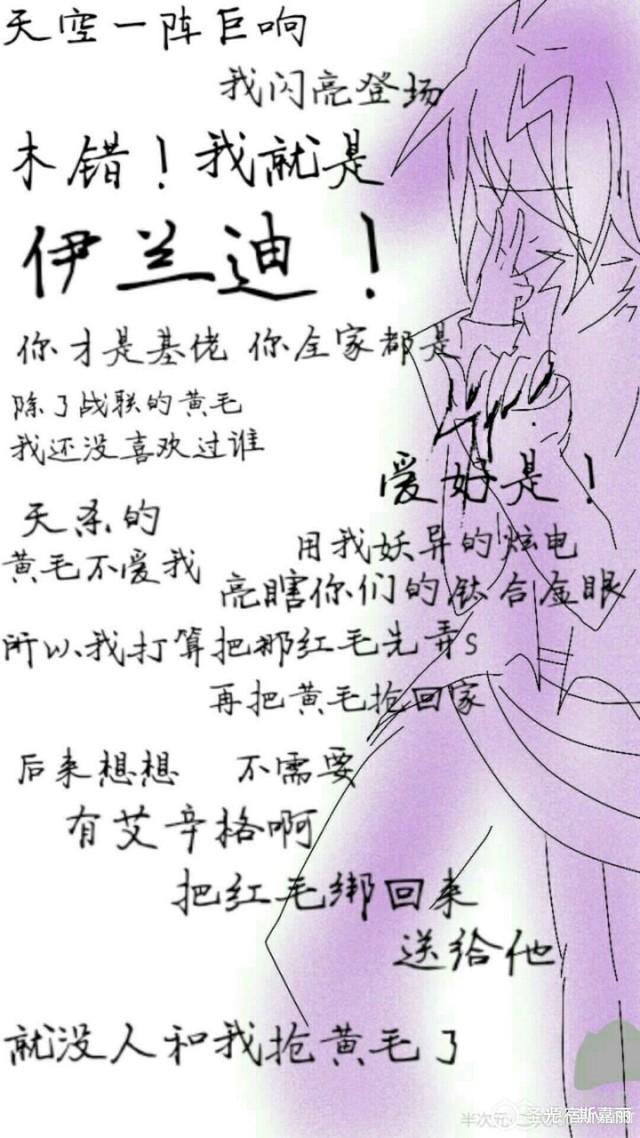 天空一阵巨响
我闪亮登场
木错！我就是
伊兰迪！
你才是基佬 你全家都是
除了战联的黄毛
我还没喜欢过谁
爱好是！
天杀的
黄毛不爱我
用我妖异的炫电
亮瞎你们的钛合金眼
所以我打算把那红毛先弄s
再把黄毛抢回家
后来想想 不需要
有艾辛格啊
把红毛绑回来
送给他
就没人和我抢黄毛了
半次元
圣光宿斯嘉丽